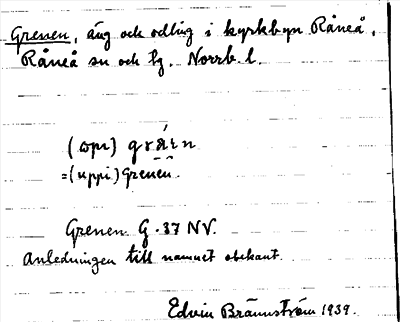 Grenen, äng och odling i kyrkbyn Råneå,
Råneå sn och tg. Norrb. l.
(opi)
=(uppi) Grenen.
Grenen G. 37 NV.
Anledningen till namnet obekant.
Edvin Brännström 1939.